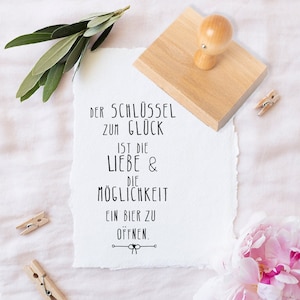 DER SCHLÜSSEL
ZUM GLÜCK
IST DIE
LIEBE &
DIE
MÖGLICHKEIT
EIN BIER ZU
ÖFFNEN.